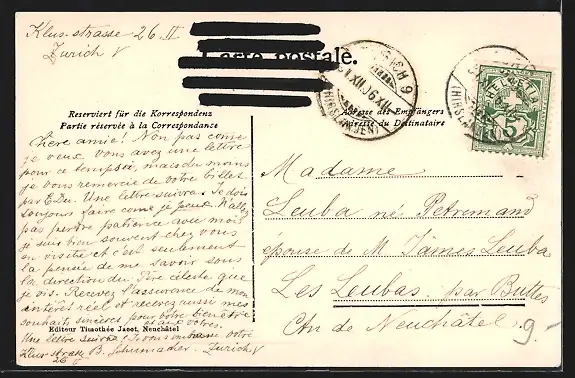 Klus-strasse 26 II
Zurich V
Carte postale.
Reserviert für die Korrespondenz
Partie réservée à la Correspondance
Adresse des Empfängers
Adresse du Destinataire
ZÜRICH 9
(HIRSLANDEN)
HELVETIA
5
Chère amie! Non pas comme
je veux vous avez une lettre
pour ce temps-ci, mais du moins
je vous remercie de votre billet
par E. Du. Une lettre suivra. Je dois
toujours faire comme je peux. N'allez
pas perdre patience avec moi
je suis bien souvent chez vous
en visite et c'est seulement
la pensée de me savoir sous
la direction du Père céleste que
je vis. Recevez l'assurance de mon
intérêt réel et recevez aussi mes
souhaits sincères pour votre bien-être
et aux vôtres.
Une lettre suivra! Je vous embrasse votre
Klus-strasse B. Schumacher. Zurich V
26 II
Editeur Timothée Jacot, Neuchâtel
Madame
Leuba né Petremand
épouse de M James Leuba
Les Leubas par Buttes
Ctn de Neuchâtel
9-